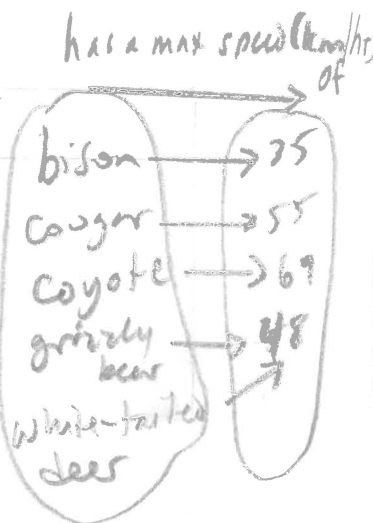 has a max speed (km/hr)
of
bison 35
cougar 55
coyote
grizzly 48
bear
white-tailed
deer